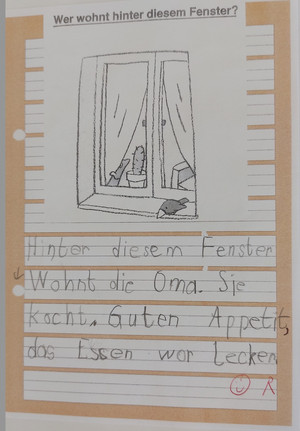 Wer wohnt hinter diesem Fenster?
Hinter diesem Fenster
Wohnt die Oma. Sie
kocht. Guten Appetit,
das Essen war Lecker.
R